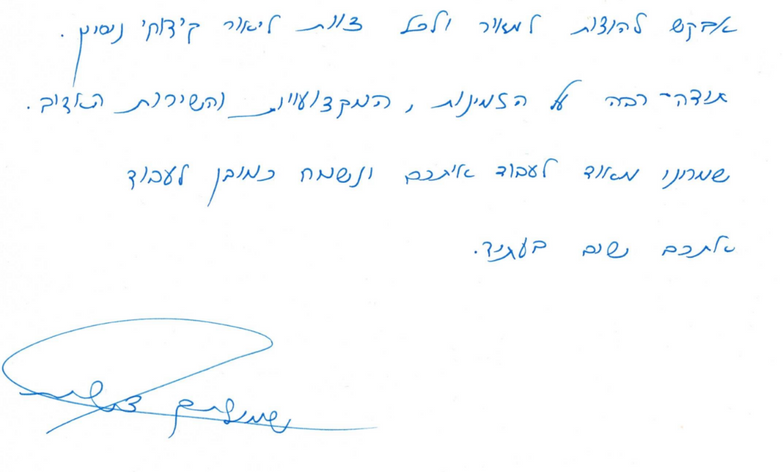 אבקש להודות למאור ולכל צוות ליאור קידוחי ניסיון.
תודה-רבה על הזמינות, המקצועיות והשירות האדיב.
שמחנו מאוד לעבוד איתכם ונשמח כמובן לעבוד
אתכם שוב בעתיד.